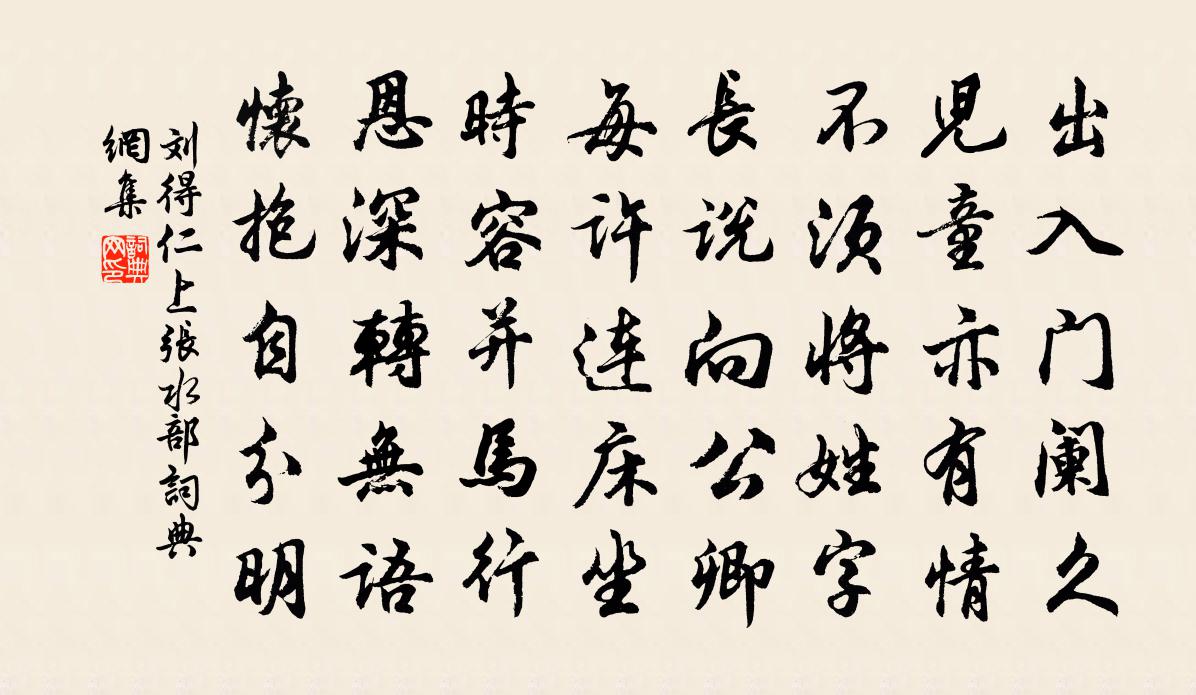 出入门阑久
児童亦有情
不须将姓字
長说向公卿
每许连床坐
時容并馬行
恩深轉無語
懷抱自分明
刘得仁上張水部詞典
網集
詞典
网印